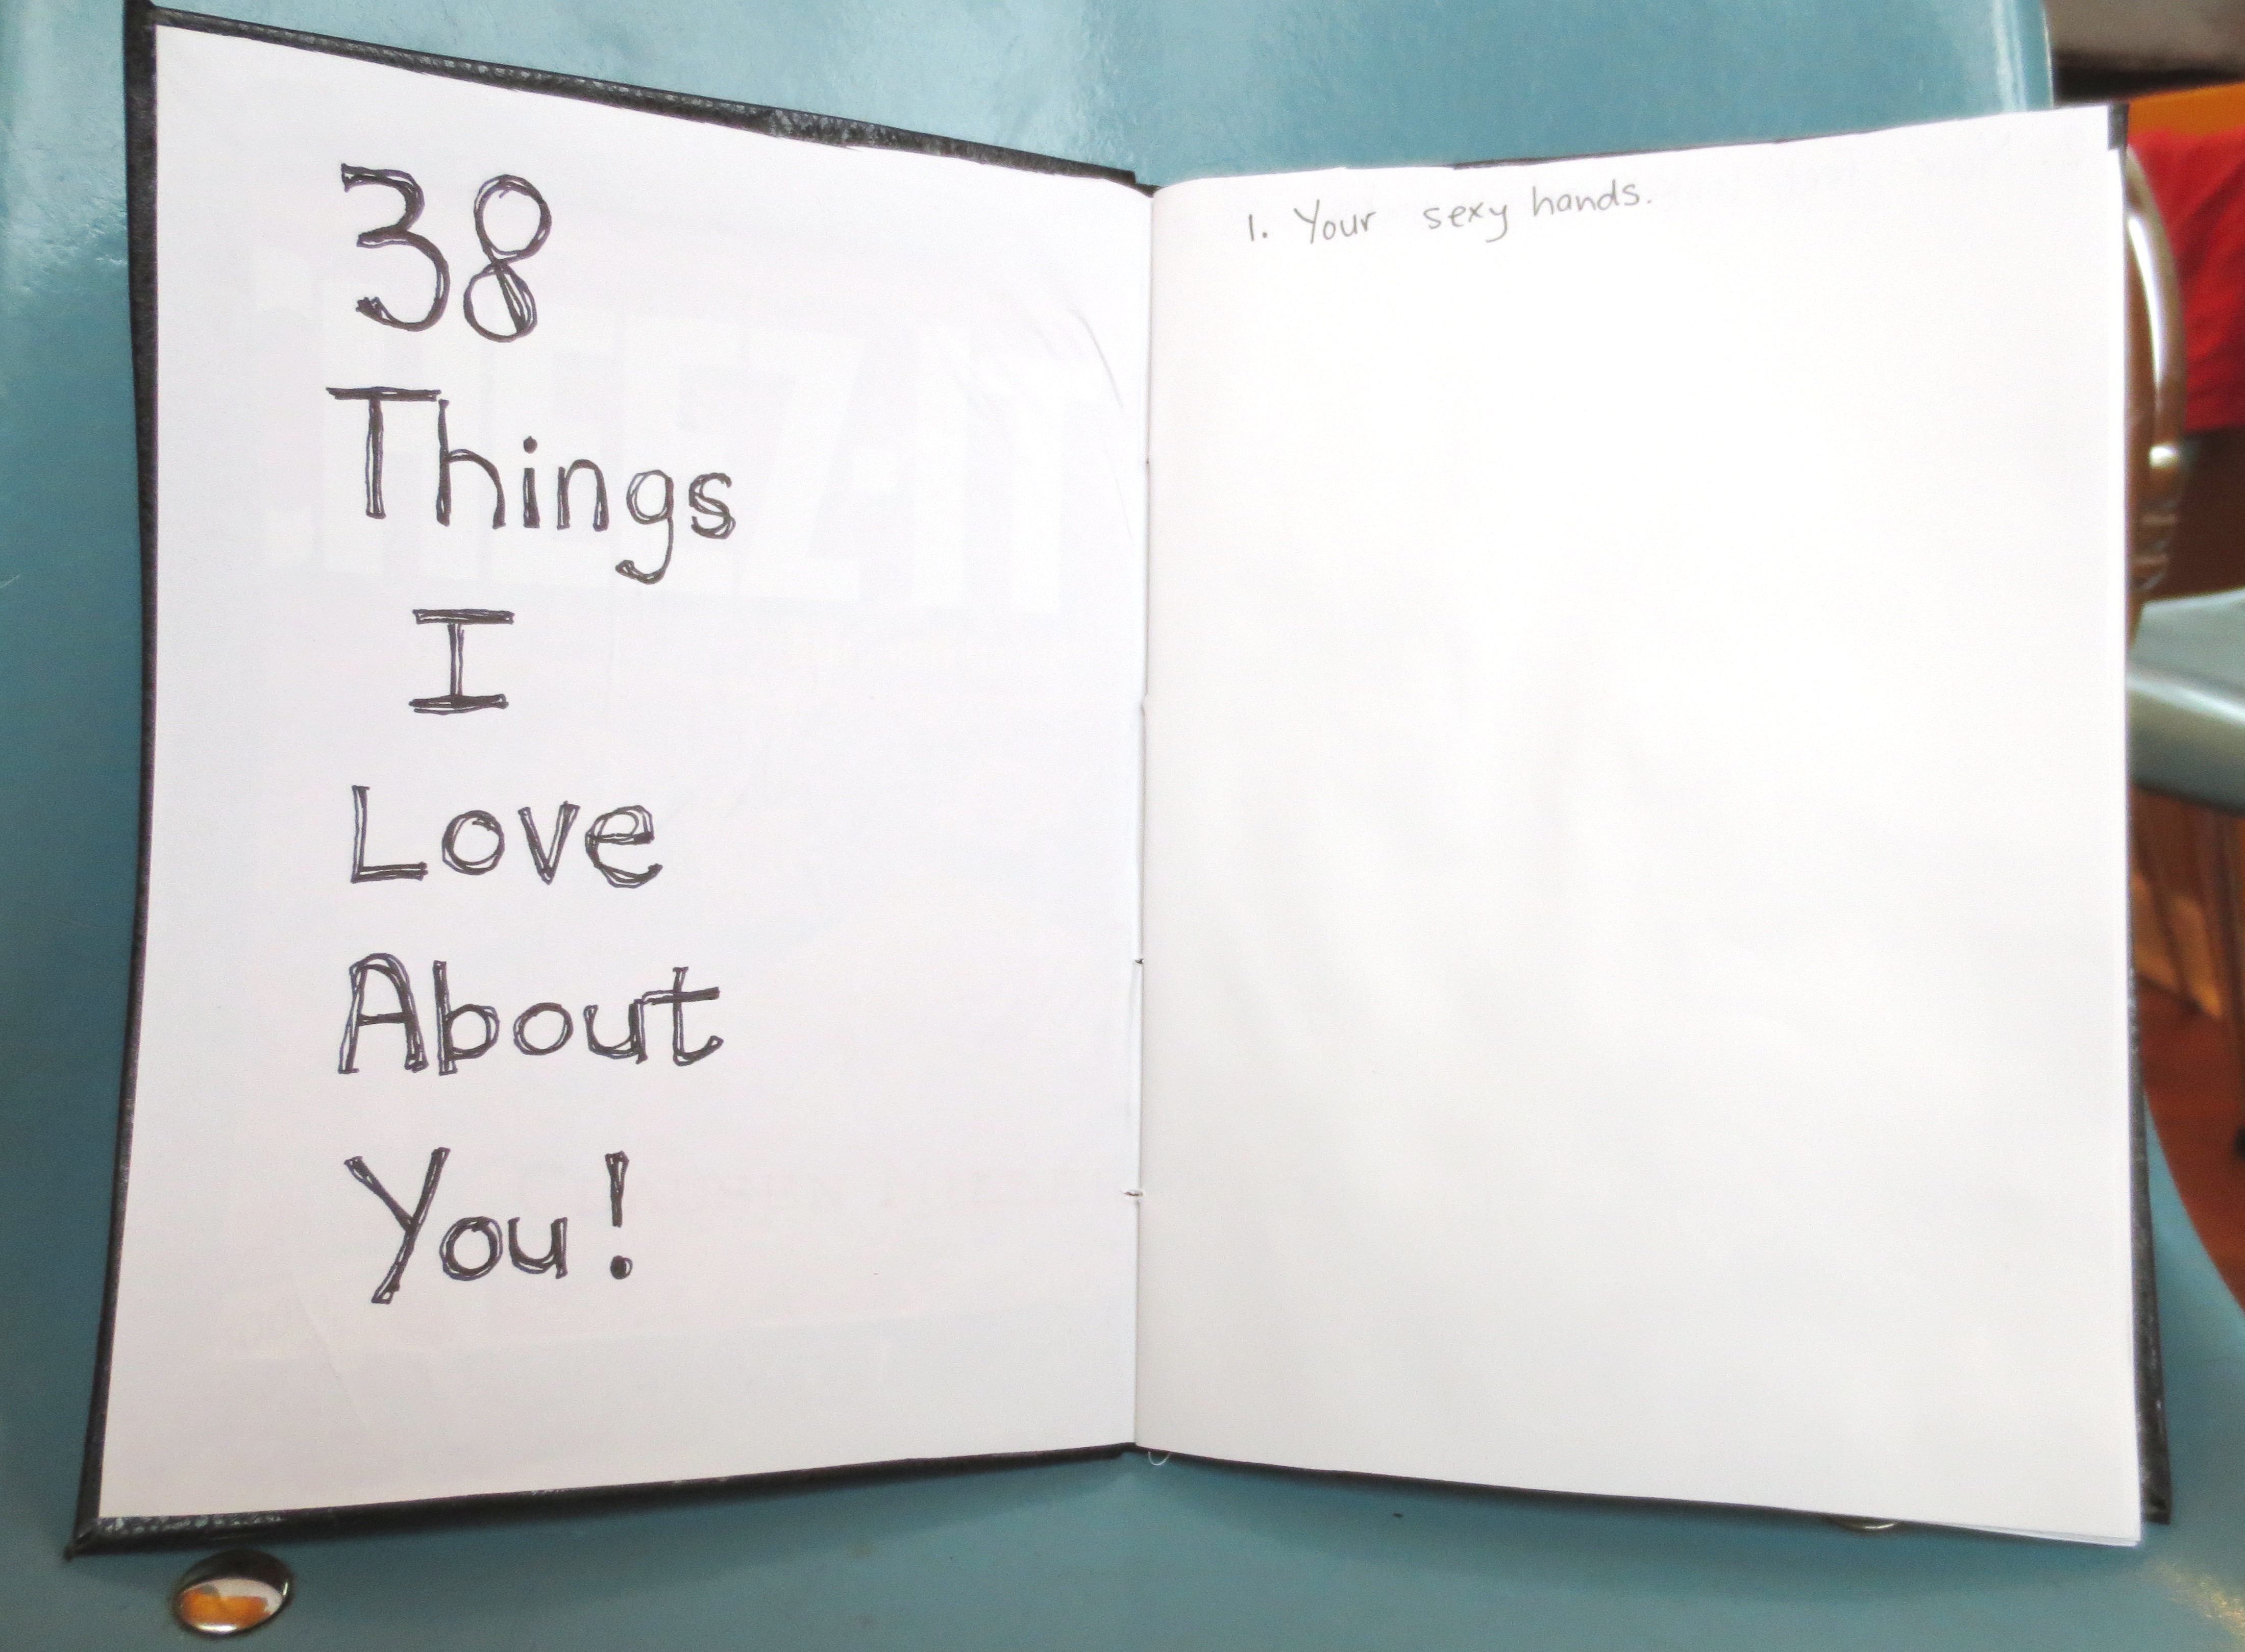 38
Things
I
Love
About
You!
1. Your sexy hands.